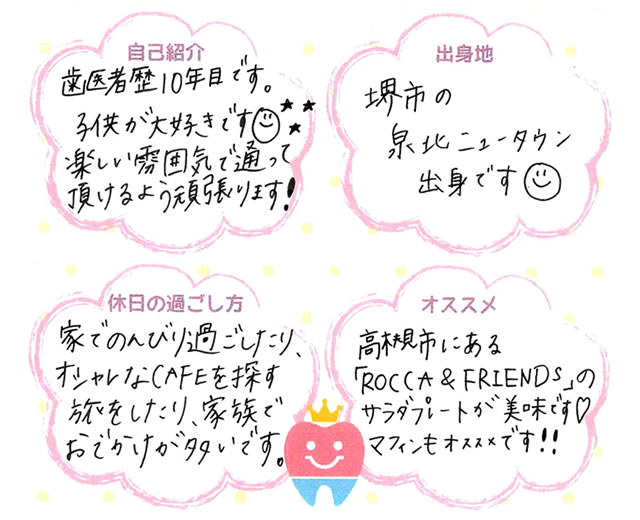 自己紹介
歯医者歴10年目です。
子供が大好きです
楽しい雰囲気で通って
頂けるよう頑張ります!
出身地
堺市の
泉北ニュータウン
出身です
休日の過ごし方
家でのんびり過ごしたり、
オシャレなCAFEを探す
旅をしたり、家族で
おでかけが多いです。
オススメ
高槻市にある
「ROCCA & FRIENDS」の
サラダプレートが美味です♡
マフィンもオススメです!!